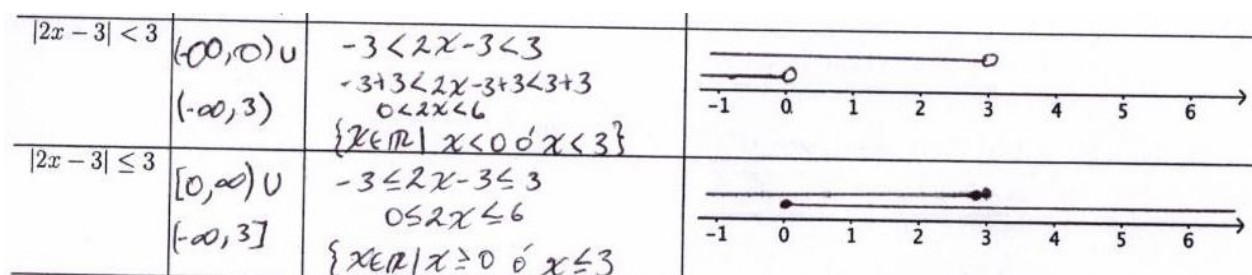 |2x − 3| < 3
(-∞,0) ∪
(-∞,3)
-3<2x-3<3
-3+3<2x-3+3<3+3
0<2x<6
{x∈ℝ| x<0 ó x<3}
-1 0 1 2 3 4 5 6
|2x − 3| ≤ 3
[0,∞) ∪
(-∞,3]
-3≤2x-3≤3
0≤2x≤6
{x∈ℝ|x≥0 ó x≤3
-1 0 1 2 3 4 5 6